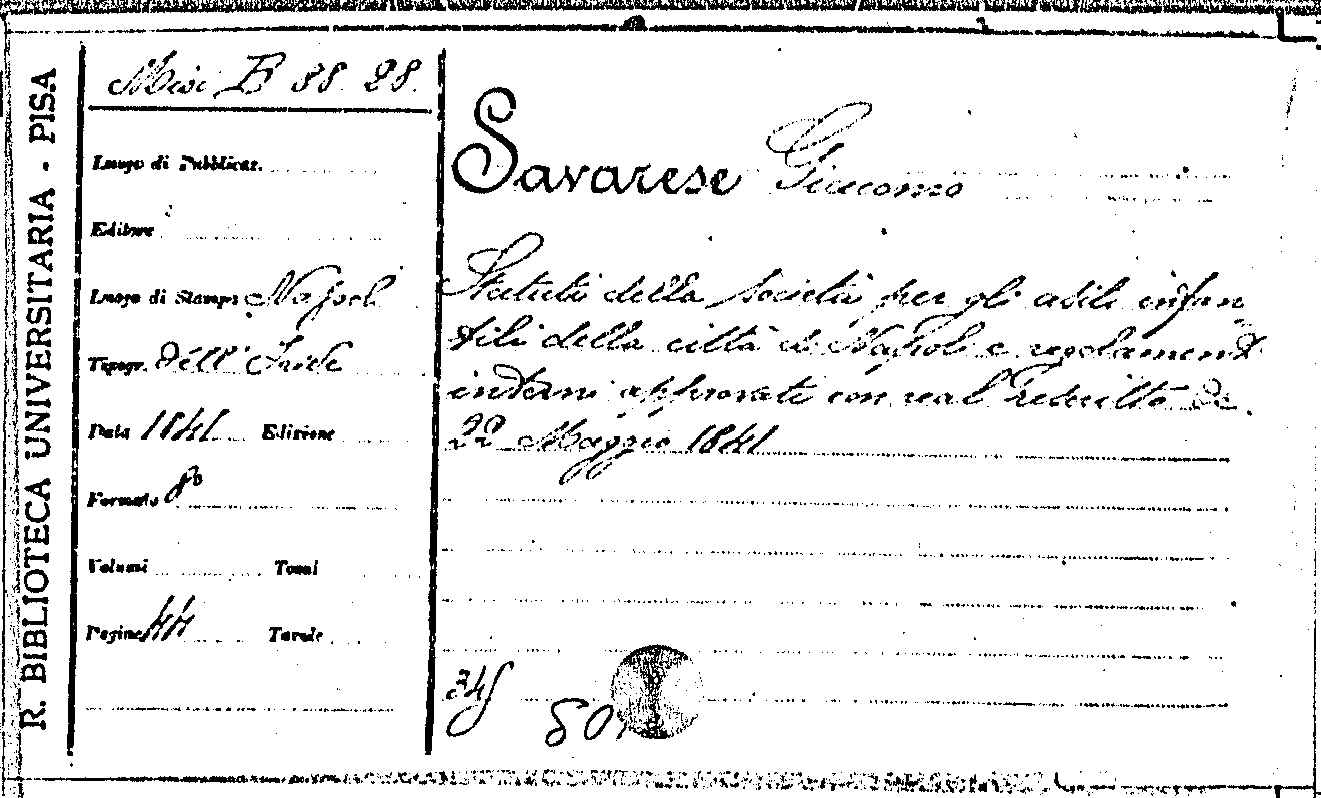 R. BIBLIOTECA UNIVERSITARIA - PISA
Misc B 88. 28.
Luogo di Pubblicaz.
Editore
Luogo di Stampa Napoli
Tipogr. dell' Iride
Data 1841 Edizione
Formato 8°
Volumi Tomi
Pagine 44 Tavole
Savarese Giacomo
Statuti della Società per gli asili infan
tili della città di Napoli e regolamenti
interni approvati con real rescritto de
22 Maggio 1841